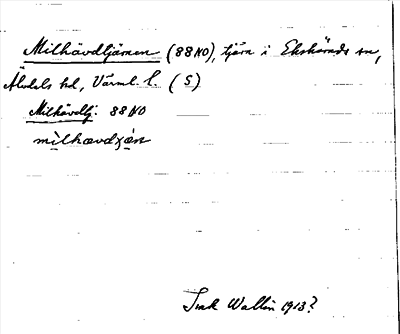 Milhävdtjärnen (88NO), tjärn i Ekshärads sn,
Älvdals hd, Värml. l. (S)
Milhävdtj: 88 NO
milhævdjæ̀n
Wallin 1913?